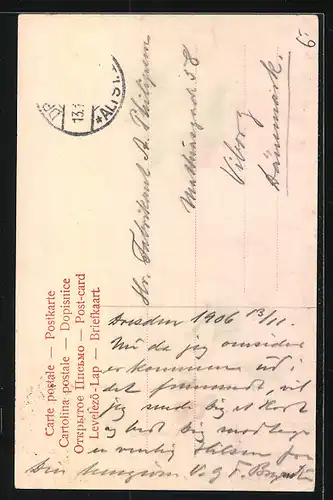 Carte postale — Postkarte
Cartolina postale — Dopisnice
Открытое Письмо — Post-card
Levelező-Lap — Briefkaart
13.1
*ALTST.
6
Hr. Fabrikant A. Philipsen
Viborg
Dänemark.
Dresden 1906 13/11.
Nu da jeg omsider
er kommen ud i
det fremmede, vil
jeg sende dig et Kort
og
en venlig Hilsen fra
Din hengivne V. &